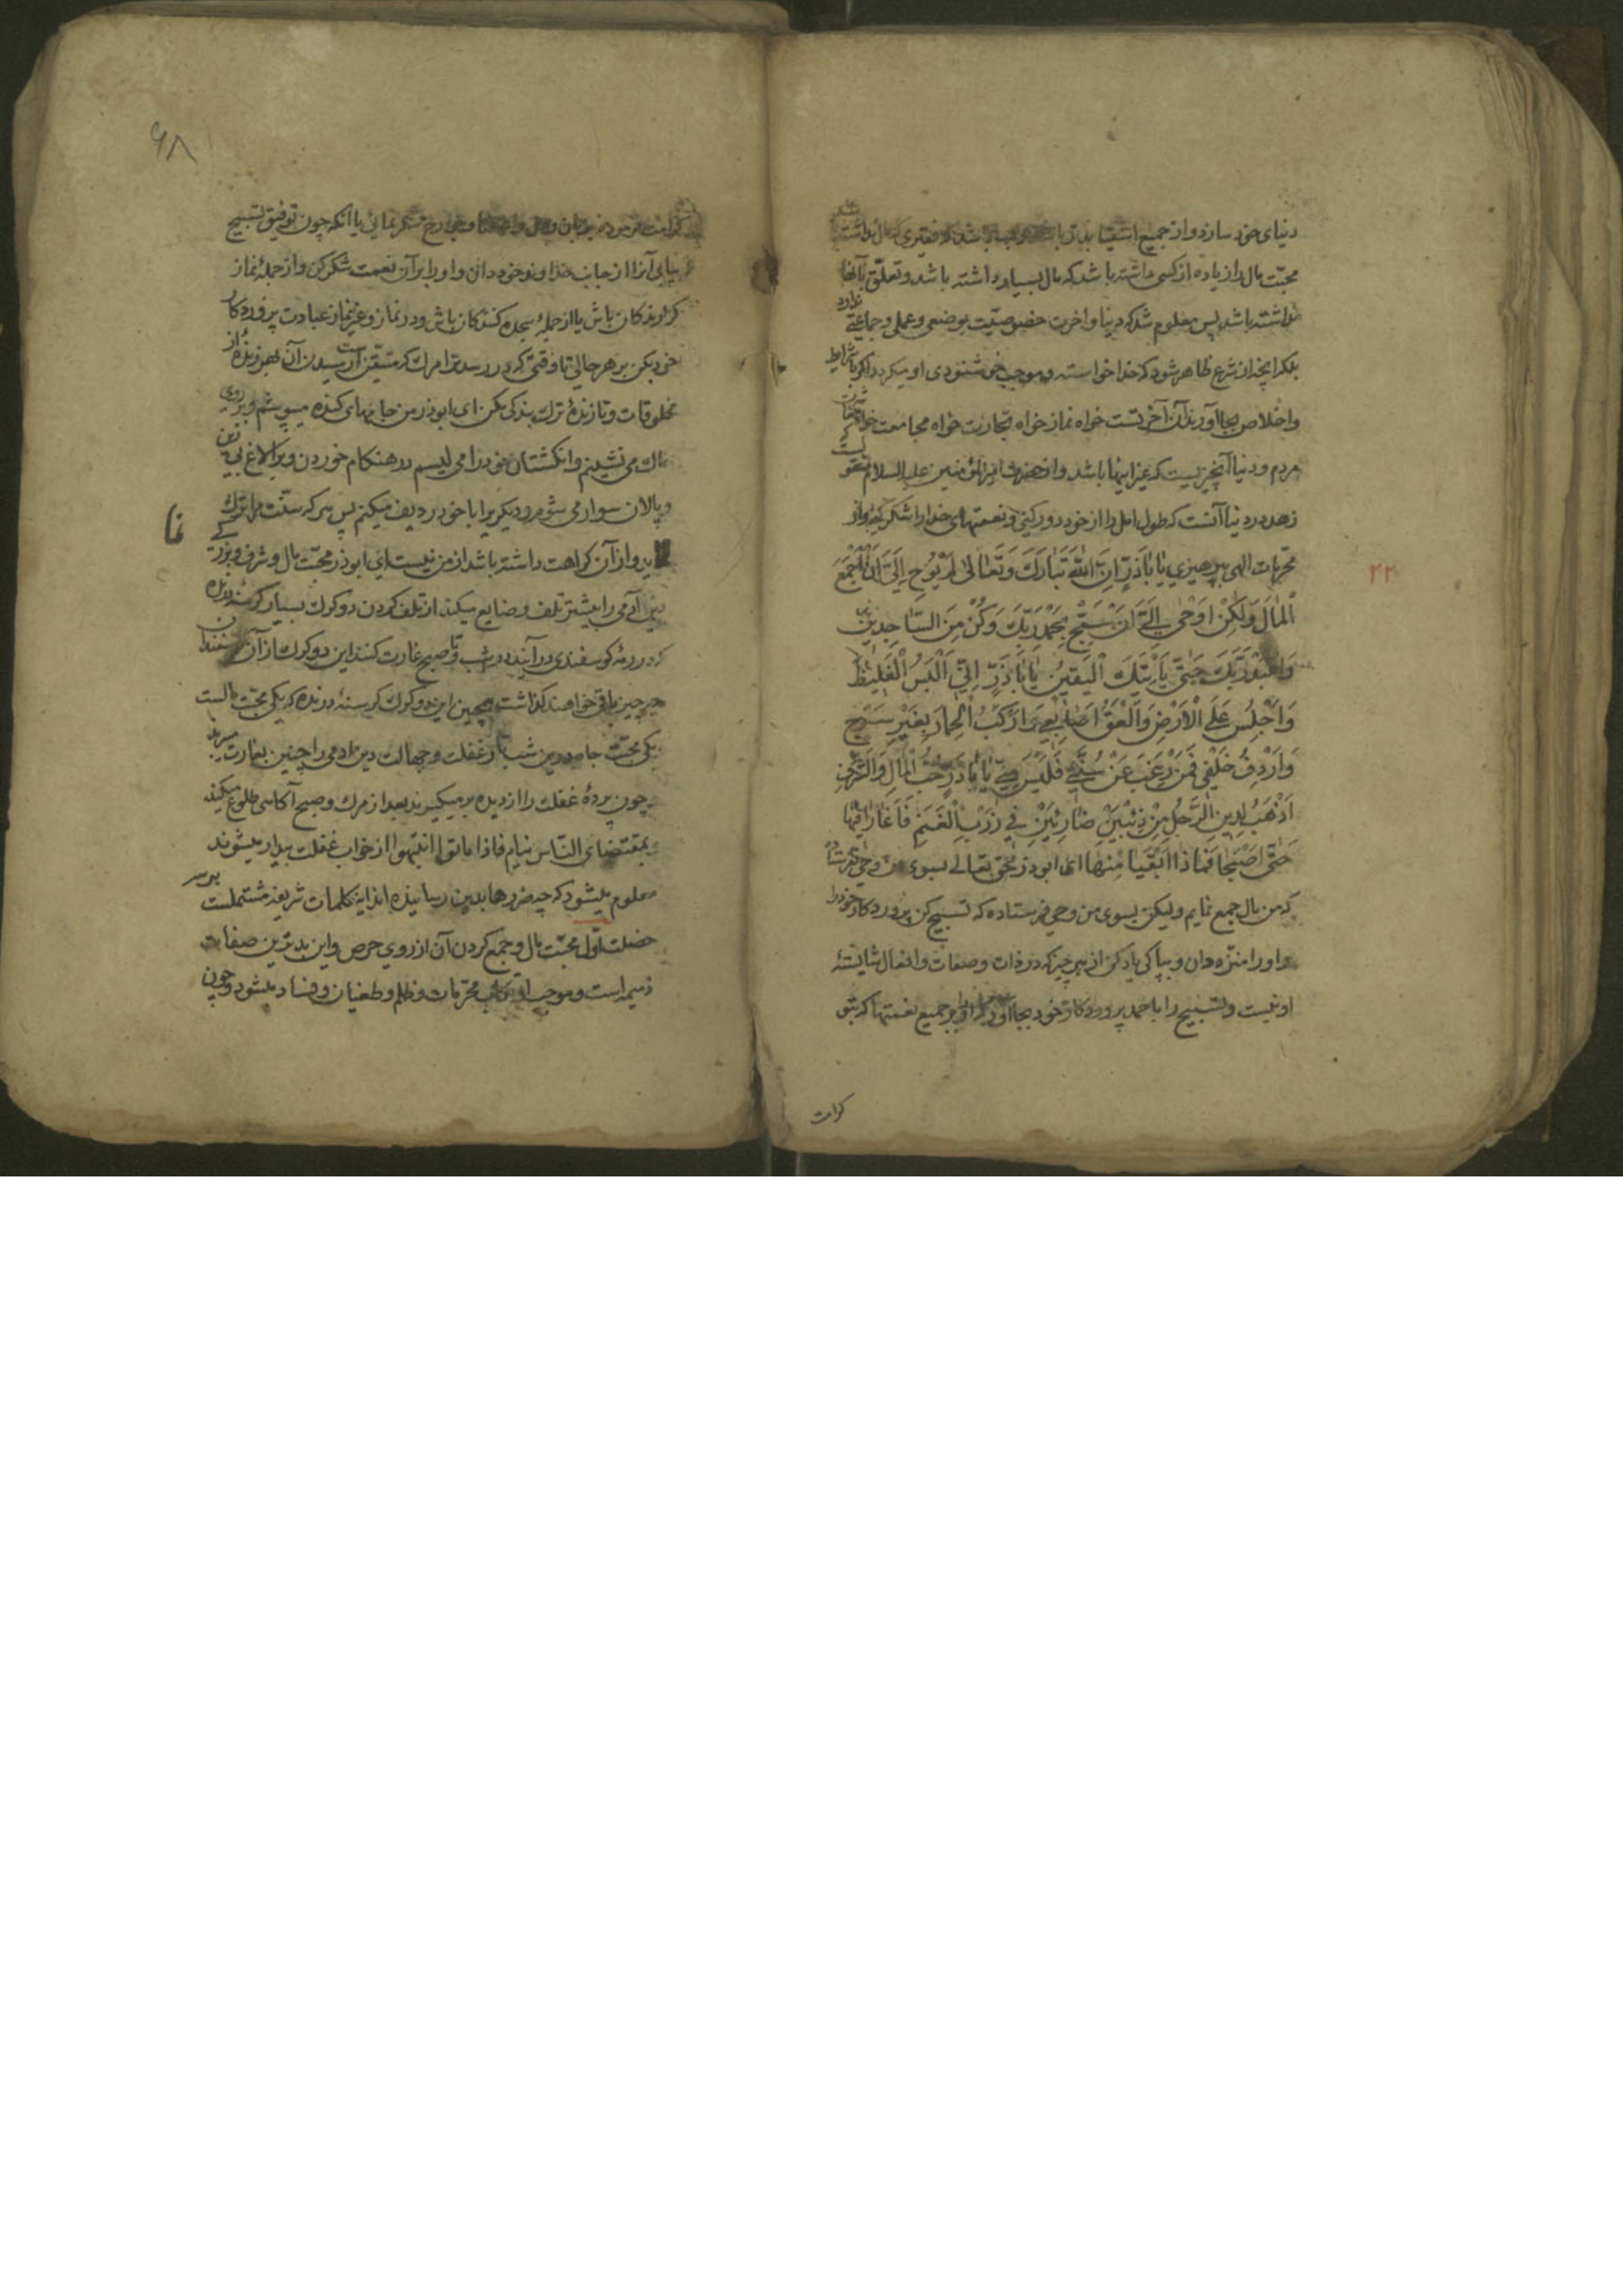 دنیای خود سازد و از جمیع اشقیا بدتر باشد فقیری که مال نداشته
محبّت مال را زیاده از کسی داشته باشد که مال بسیار داشته باشد و تعلّق بآنها
نداشته باشد پس معلوم شد که دنیا و اخرت خصوصیّت بوضعی و عملی و جماعتی ندارد
بلکه انچه از شرع ظاهر شود که خدا خواسته و موجب خوشنودی او میکردد اکر با شرایط
و اخلاص بجا آورند آن آخرتست خواه نماز خواه تجارت خواه مجامعت خواه
مردم و دنیا آنچیزیست که غیر اینها باشد و از حضرت امیرالمؤمنین علیه السلام منقولست که
زهد در دنیا آنست که طول امل را از خود دور کنی و نعمتهای خدا را شکر کنی و از
محرّمات الهی بپرهیزی یَا بَاذَرٍّ اِنَّ اللّٰهَ تَبَارَكَ وَتَعَالٰی لَمْ یُوحِ اِلَیَّ اَنْ اَجْمَعَ
۲۲
الْمَالَ وَلٰکِنْ اَوْحٰی اِلَیَّ اَنْ سَبِّحْ بِحَمْدِ رَبِّكَ وَکُنْ مِنَ السَّاجِدِینَ
وَاعْبُدْ رَبَّكَ حَتّٰی یَأْتِیَكَ الْیَقِینُ یَا بَاذَرٍّ اِنِّی اَلْبَسُ الْغَلِیظَ
وَاَجْلِسُ عَلَی الْاَرْضِ وَاَلْعَقُ اَصَابِعِی وَاَرْکَبُ الْحِمَارَ بِغَیْرِ سَرْجٍ
وَاُرْدِفُ خَلْفِی فَمَنْ رَغِبَ عَنْ سُنَّتِی فَلَیْسَ مِنِّی یَا بَاذَرٍّ حُبُّ الْمَالِ وَالشَّرَفِ
اَذْهَبُ لِدِینِ الرَّجُلِ مِنْ ذِئْبَیْنِ ضَارِیَیْنِ فِی زَرْبِ الْغَنَمِ فَاَغَارَا فِیهَا
حَتّٰی اَصْبَحَا فَمَاذَا اَبْقَیَا مِنْهَا ای ابوذر حق تعالی بسوی من وحی نفرستاد
که من مال جمع نمایم ولیکن بسوی من وحی فرستاده که تسبیح کن پروردکار خود را
و او را منزّه دان و بپاکی یاد کن از هر چیز که در ذات و صفات و افعال شایستهٔ
او نیست و تسبیح را با حمد پروردکار خود بجا آور و او را بر جمیع نعمتها که بتو
کرامت
۶۸
کرامت فرموده شکر نمائی یا آنکه چون توفیق تسبیح
بیابی آنرا از جانب خداوند خود دان و او را بر آن نعمت شکر کن و از جملهٔ نماز
کزارندکان باش یا از جملهٔ سجده کنندکان باش و در نماز و غیر نماز عبادت پروردکار
خود بکن بر هر حالی تا وقتی که در رسد ترا مرك که متیقّن است رسیدن آن بهر زندهٔ از
مخلوقات و تا زندهٔ ترك بندکی مکن ای ابوذر من جامهای کنده میپوشم و بر روی
خاك می نشینم و انکشتان خود را می لیسم در هنکام خوردن و بر الاغ بی زین
و پالان سوار می شوم و دیکریرا با خود ردیف میکنم پس هر که سنّت مرا ترك
نما
و از آن کراهت داشته باشد از من نیست ای ابوذر محبّت مال و شرف و بزرکی
دین آدمی را بیشتر تلف و ضایع میکند از تلف کردن دو کرك بسیار کرسنهٔ درنده
که در رمهٔ کوسفندی در آیند در شب و تا صبح غارت کنند این دو کرك از آن کوسفندان
هیچ چیز باقی خواهند کذاشت همچنین این دو کرك کرسنهٔ درنده که یکی محبّت مالست
یکی محبّت جاه در این شب تار غفلت و جهالت دین ادمی را چنین بغارت میبرند
چون پردهٔ غفلت را از دیده بر میکیرند بعد از مرك و صبح آکاهی طلوع میکند
بمقتضای النّاس نیام فاذا ماتوا انتبهوا از خواب غفلت بیدار میشوند
معلوم میشود که چه ضررها بدین رسانیده اند این کلمات شریفه مشتملست بر سه
خصلت اوّل محبّت مال و جمع کردن آن از روی حرص و این بدترین صفات
ذمیمه است و موجب ارتکاب محرّمات و ظلم و طغیان و فساد میشود و چون